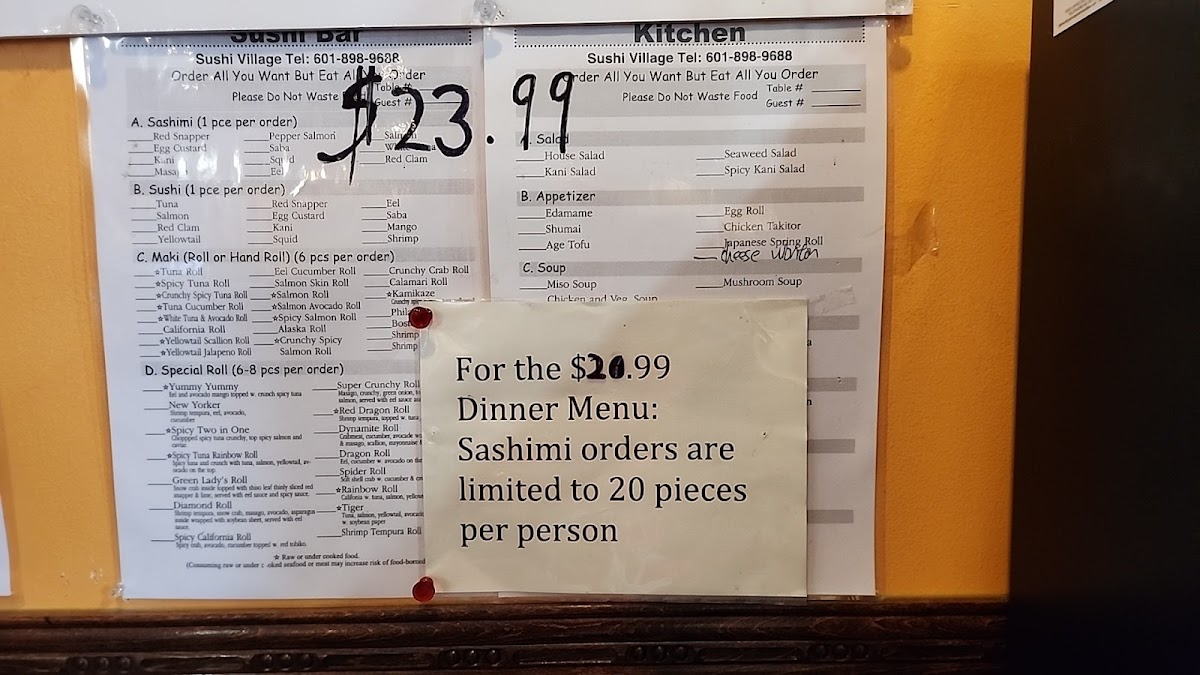 Sushi Bar
Sushi Village Tel: 601-898-9688
Order All You Want But Eat All Order
Please Do Not Waste
Table #
Guest #
$23.99
A. Sashimi (1 pce per order)
Red Snapper Pepper Salmon Salmon
Egg Custard Saba
Kani Squid Red Clam
Masago Eel
B. Sushi (1 pce per order)
Tuna Red Snapper Eel
Salmon Egg Custard Saba
Red Clam Kani Mango
Yellowtail Squid Shrimp
C. Maki (Roll or Hand Roll) (6 pcs per order)
☆Tuna Roll Eel Cucumber Roll Crunchy Crab Roll
☆Spicy Tuna Roll Salmon Skin Roll Calamari Roll
☆Crunchy Spicy Tuna Roll ☆Salmon Roll ☆Kamikaze
☆Tuna Cucumber Roll ☆Salmon Avocado Roll
☆White Tuna & Avocado Roll ☆Spicy Salmon Roll
California Roll Alaska Roll
☆Yellowtail Scallion Roll ☆Crunchy Spicy Shrimp
☆Yellowtail Jalapeno Roll Salmon Roll Shrimp
D. Special Roll (6-8 pcs per order)
☆Yummy Yummy
Eel and avocado mango topped w. crunch spicy tuna
New Yorker
Shrimp tempura, eel, avocado,
cucumber
☆Spicy Two in One
Choppped spicy tuna crunchy, top spicy salmon and
caviar.
☆Spicy Tuna Rainbow Roll
Spicy tuna and crunch with tuna, salmon, yellowtail, av-
ocado on the top.
Green Lady's Roll
Snow crab inside topped with shiso leaf thinly sliced red
snapper & lime, served with eel sauce and spicy sauce.
Diamond Roll
Shrimp tempura, snow crab, masago, avocado, asparagus
inside wrapped with soybean sheet, served with eel
sauce.
Spicy California Roll
Spicy crab, avocado, cucumber topped w. red tobiko.
Super Crunchy Roll
Masago, crunchy, green onion,
salmon, served with eel sauce
☆Red Dragon Roll
Shrimp tempura, topped w. tuna
Dynamite Roll
Crabmeat, cucumber, avocado
& masago, scallion, mayonnaise
Dragon Roll
Eel, cucumber w. avocado on the
Spider Roll
Soft shell crab w. cucumber &
☆Rainbow Roll
California w. tuna, salmon,
☆Tiger
Tuna, salmon, yellowtail,
w. soybean paper
Shrimp Tempura Roll
☆ Raw or under cooked food.
(Consuming raw or under cooked seafood or meat may increase risk of food-borned
Kitchen
Sushi Village Tel: 601-898-9688
Order All You Want But Eat All You Order
Please Do Not Waste Food
Table #
Guest #
A. Salad
House Salad Seaweed Salad
Kani Salad Spicy Kani Salad
B. Appetizer
Edamame Egg Roll
Shumai Chicken Takitor
Age Tofu Japanese Spring Roll
cheese wonton
C. Soup
Miso Soup Mushroom Soup
Chicken and Veg. Soup
For the $26.99
Dinner Menu:
Sashimi orders are
limited to 20 pieces
per person